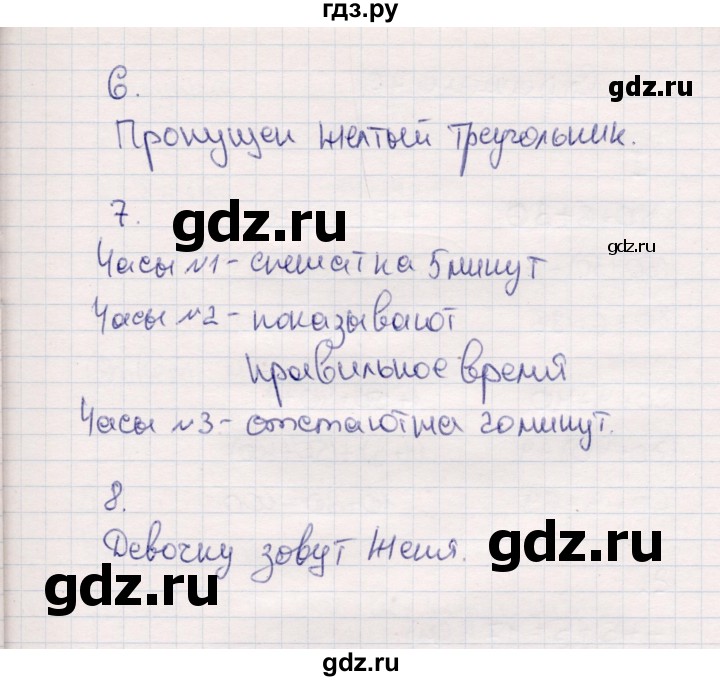 гдз.ру
6.
gdz.ru
Пропущен желтый треугольник.
7.
gdz.ru
gdz.ru
Часы №1 - спешат на 5 минут
Часы №2 - показывают
правильное время
Часы №3 - отстают на 20 минут.
8.
gdz.ru
Девочку зовут Женя.
gdz.ru
gdz.ru